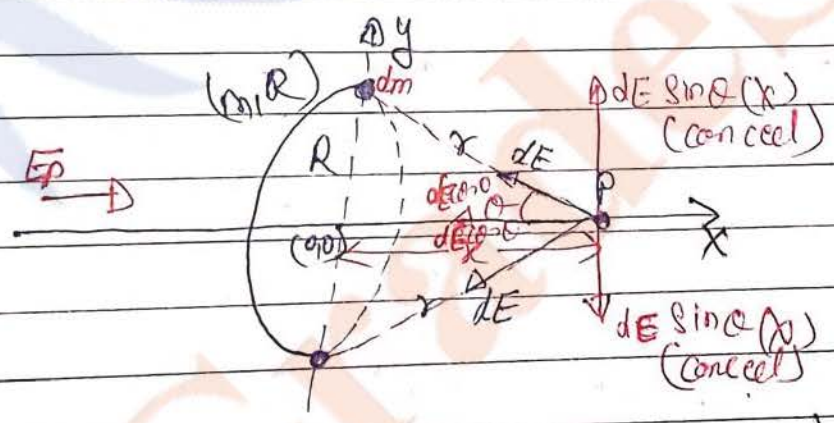 y
(m,R)
dm
dE Sinθ (x)
(conceel)
r
dE
R
Ep
dEcosθ
θ
P
(0,0)
dEcosθ
x
X
r
dE
dE Sinθ (x)
(conceel)